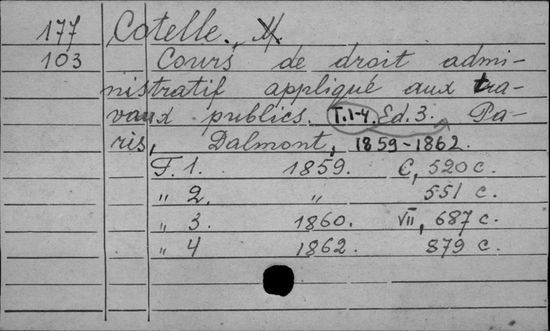 177 Cotelle, M.
103 Cours de droit admi-
nistratif appliqué aux tra-
vaux publics. T.1-4. Ed. 3. Pa-
ris, Dalmont, 1859-1862.
T. 1. 1859. C, 520 c.
" 2. " 551 c.
" 3. 1860. VII, 687 c.
" 4 1862. 879 c.